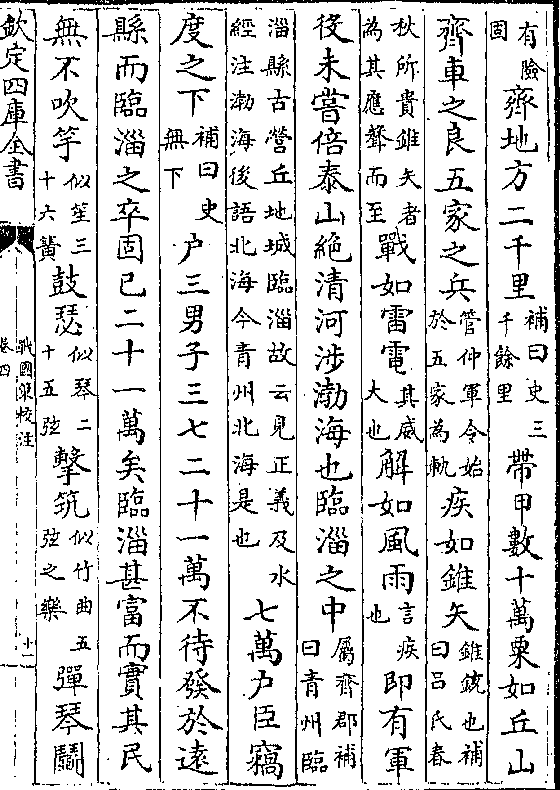 有險固齊地方二千里補曰史三千餘里帶甲數十萬粟如丘山
齊車之良五家之兵管仲軍令始於五家為軌疾如錐矢錐銳也補曰呂氏春
秋所貴錐矢者為其應聲而至戰如雷電其威大也解如風雨言疾也即有軍
役未嘗倍泰山絶清河涉渤海也臨淄之中屬齊郡補曰青州臨
淄縣古營丘地城臨淄故云見正義及水經注渤海後語北海今青州北海是也七萬户臣竊
度之下補曰史無下户三男子三七二十一萬不待發於遠
縣而臨淄之卒固已二十一萬矣臨淄甚富而實其民
無不吹竽似笙三十六簧鼓瑟似琴二十五弦擊筑似竹曲五弦之樂彈琴鬭
欽定四庫全書
戰國策校注
卷四
十一